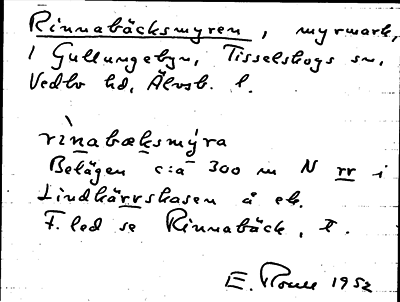 Rinnabäcksmyren, myrmark,
i Gullungebyn, Tisselskogs sn,
Vedbo hd, Älvsb. l.
rìnabæksmýra
Belägen c:a 300 m N rr i
Lindkärrshasen å ek.
F. led se Rinnabäck, t.
E. 1952